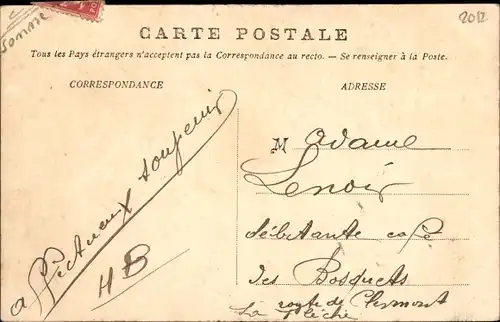 Somme
2012
CARTE POSTALE
Tous les Pays étrangers n'acceptent pas la Correspondance au recto. — Se renseigner à la Poste.
CORRESPONDANCE
affectueux souvenir
HB
ADRESSE
Madame
Lenoir
débitante café
des Bosquets
route de Clermont
La Flèche